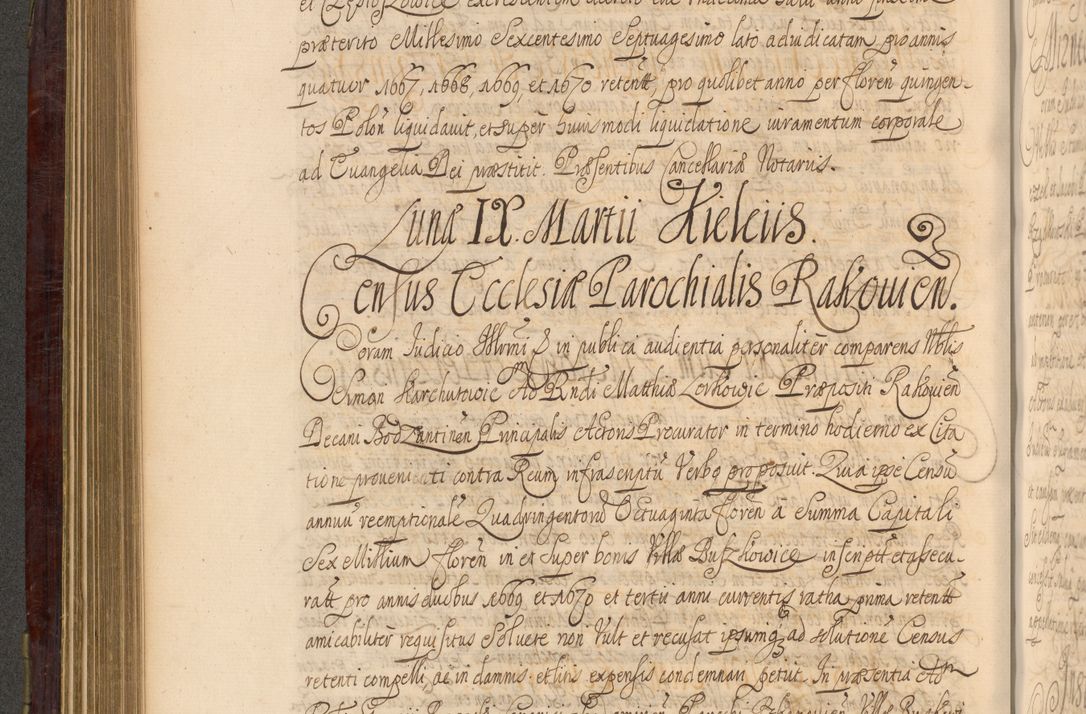 præterito Millesimo Sexcentesimo Septuagesimo lato adiudicatam, pro annis
quatuor 1667, 1668, 1669, et 1670 retent, pro quolibet anno per floren quingen-
tos Polon liquidavit, et super huiusmodi liquidatione iuramentum corporale
ad Evangelia Dei præstitit. Præsentibus Cancellariæ Notariis.
Lunæ IX. Martii Kielciis.
Census Ecclesiæ Parochialis Rakovien.
Coram Judicio Illrmi & in publica audientia personaliter comparens Nblis
Simon Karchutowic Adm Rndi Matthiæ Zorkowic Præpositi Rakovien
Decani Bodzantinen Principalis Actoris Procurator in termino hodierno ex Cita
tione provenienti contra Reum infrascriptũ Verbo proposuit. Quia ipse Censũ
annuũ reemptionale Quadringentorũ Octuaginta floren à Summa Capitali
Sex Millium floren in et super bonis Villæ Buszkowice inscript et assecu-
ratt pro annis duobus 1669 et 1670 et tertii anni currentis ratha prima retent
amicabiliter requisitus Solvere non Vult et recusat ipsumq3 ad solutionẽ Census
retenti compelli, ac in damnis et litis expensis condemnari petiit. In præsentia Adm